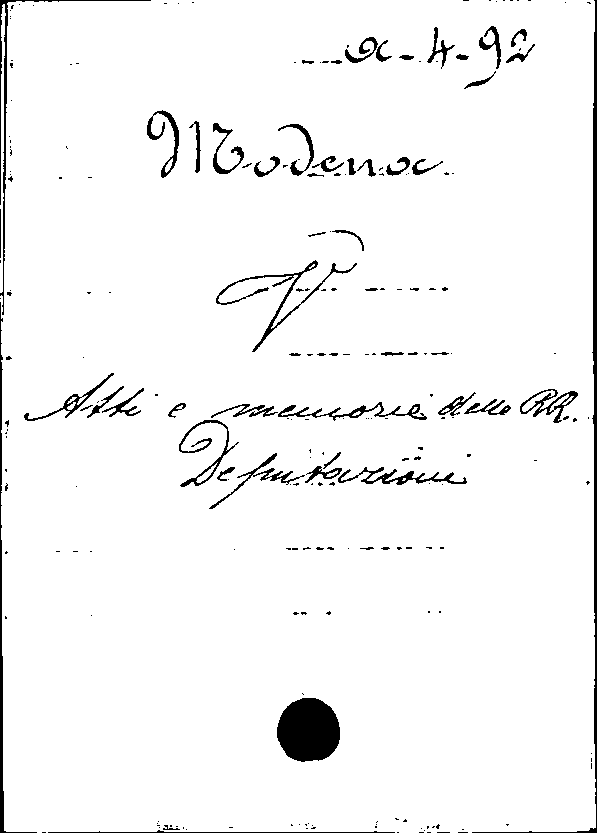 α-4-92
Modena
V
Atti e memorie delle RR.
Deputazioni